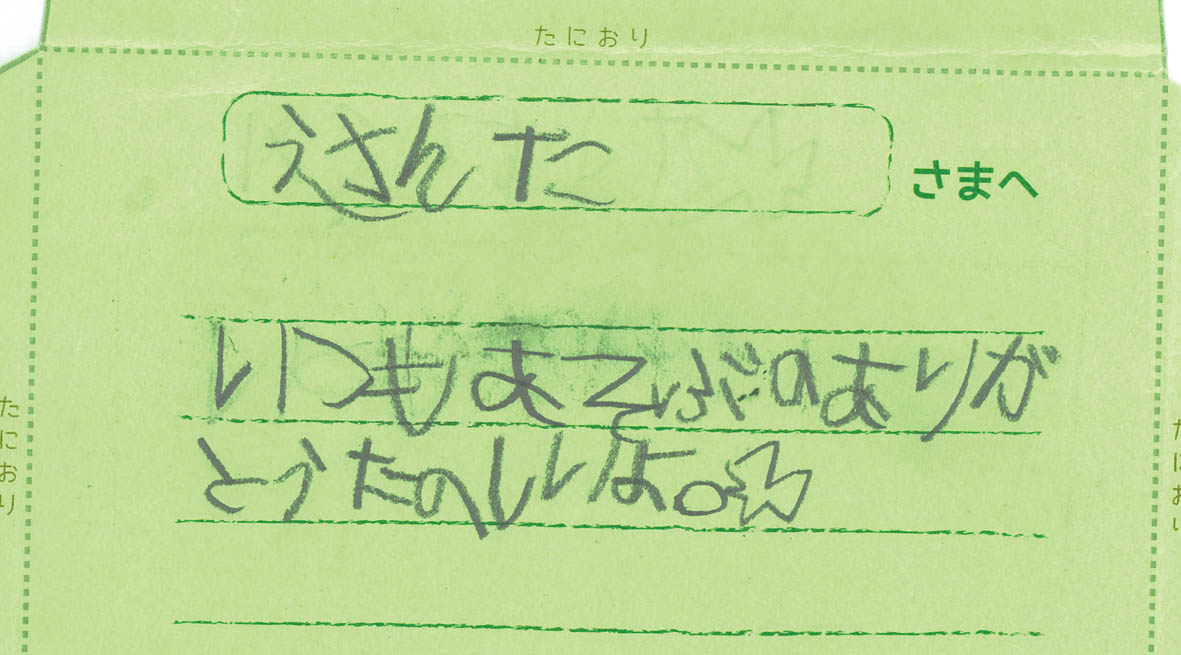 たにおり
えさんた さまへ
いつもあそぶのありが
とうたのしいよ。☆
たにおり
たにおり